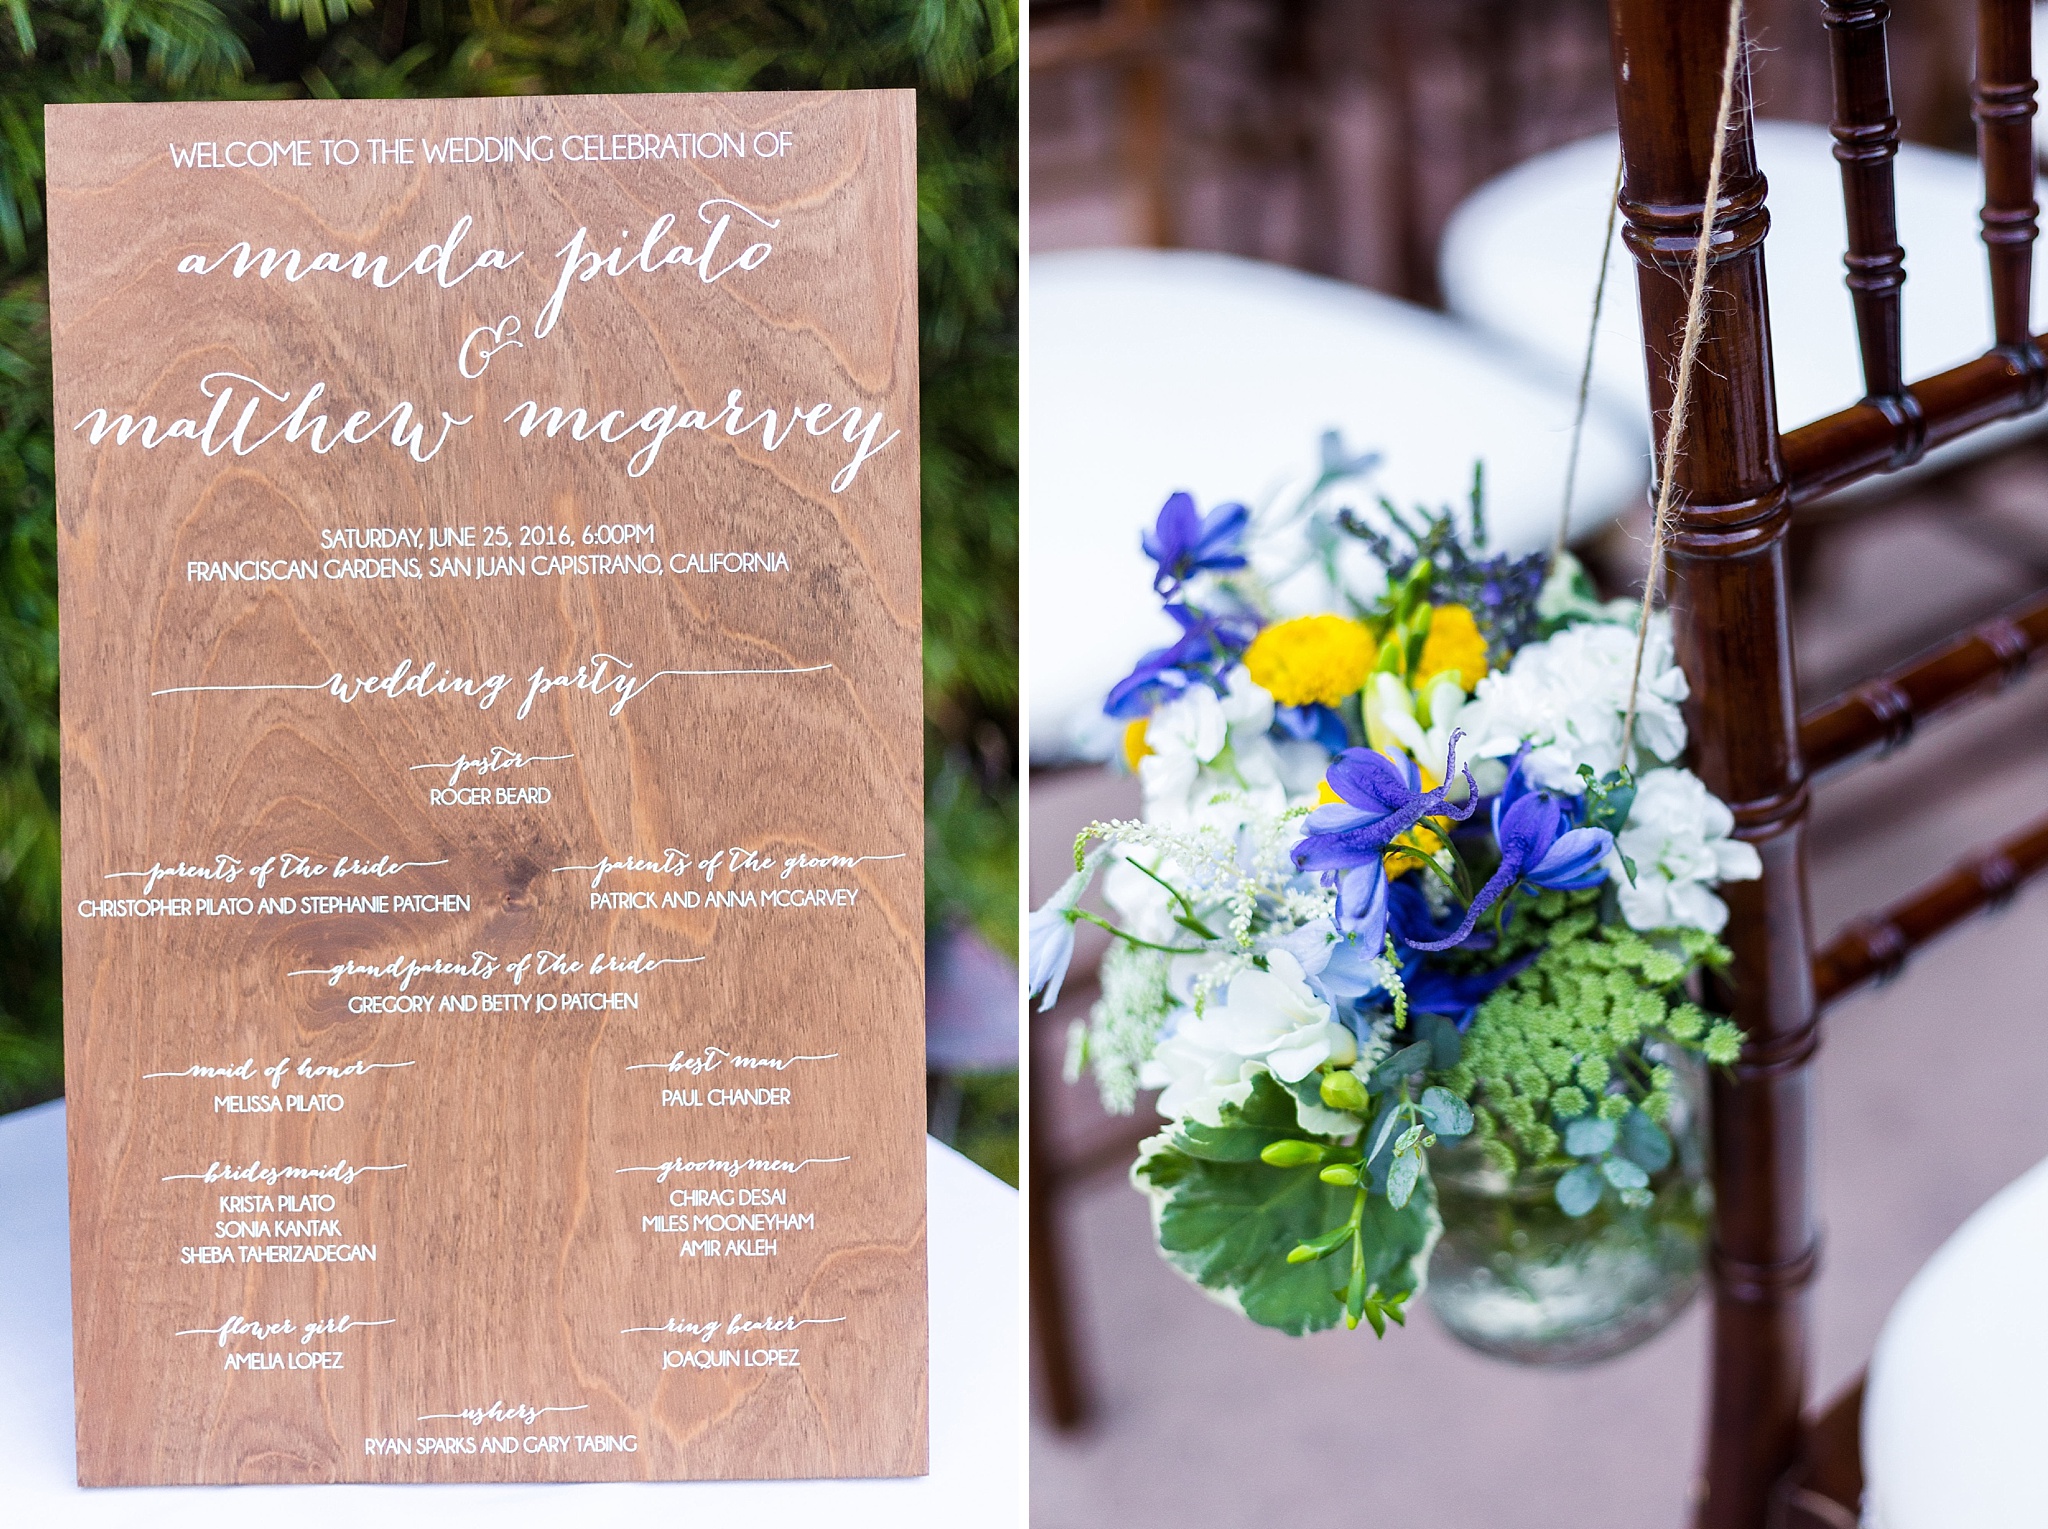 WELCOME TO THE WEDDING CELEBRATION OF
amanda pilato
&
matthew mcgarvey
SATURDAY, JUNE 25, 2016, 6:00PM
FRANCISCAN GARDENS, SAN JUAN CAPISTRANO, CALIFORNIA
wedding party
pastor
ROGER BEARD
parents of the bride
CHRISTOPHER PILATO AND STEPHANIE PATCHEN
parents of the groom
PATRICK AND ANNA MCGARVEY
grandparents of the bride
GREGORY AND BETTY JO PATCHEN
maid of honor
MELISSA PILATO
best man
PAUL CHANDER
bridesmaids
KRISTA PILATO
SONIA KANTAK
SHEBA TAHERIZADEGAN
groomsmen
CHIRAG DESAI
MILES MOONEYHAM
AMIR AKLEH
flower girl
AMELIA LOPEZ
ring bearer
JOAQUIN LOPEZ
ushers
RYAN SPARKS AND GARY TABING